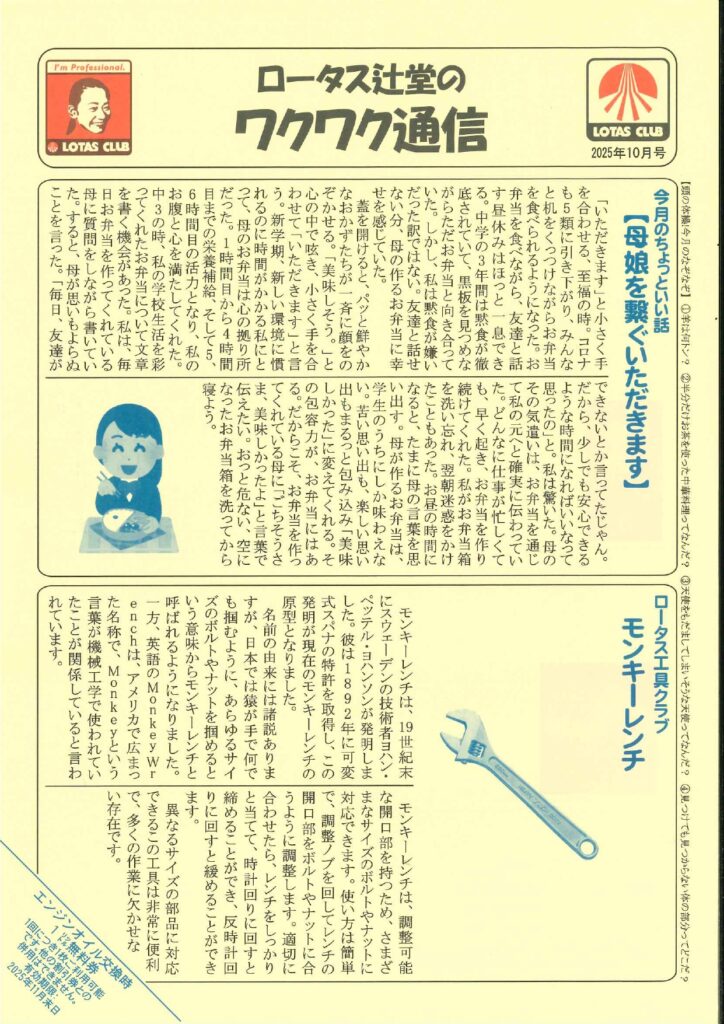 I'm Professional.
LOTAS CLUB
ロータス辻堂の
ワクワク通信
LOTAS CLUB
2025年10月号
【頭の体操!今月のなぞなぞ】 ②半分だけお茶を使った中華料理ってなんだ? ③天使をもだましてしまいそうな天使ってなんだ? ④見つけても見つからない体の部分ってどこだ?
今月のちょっといい話
【母娘を繋ぐいただきます】
「いただきます」と小さく手
を合わせる、至福の時。コロナ
も5類に引き下がり、みんな
と机をくっつけながらお弁当
を食べられるようになった。お
弁当を食べながら、友達と話
す昼休みはほっと一息でき
る。中学の3年間は黙食が徹
底されていて、黒板を見つめな
がらただお弁当と向き合って
いた。しかし、私は黙食が嫌い
だった訳ではない。友達と話せ
ない分、母の作るお弁当に幸
せを感じていた。
蓋を開けると、パッと鮮やか
なおかずたちが一斉に顔をの
ぞかせる。「美味しそう。」と
心の中で呟き、小さく手を合
わせて「いただきます」と言
う。新学期、新しい環境に慣
れるのに時間がかかる私にと
って、母のお弁当は心の拠り所
だった。1時間目から4時間
目までの栄養補給、そして5、
6時間目の活力となり、私の
お腹と心を満たしてくれた。
中3の時、私の学校生活を彩
ってくれたお弁当について文章
を書く機会があった。私は、毎
日お弁当を作ってくれている
母に質問をしながら書いてい
た。すると、母が思いもよらぬ
ことを言った。「毎日、友達が
できないとか言ってたじゃん。
だから、少しでも安心できる
ような時間になればいいなって
思ったの」と。私は驚いた。母の
その気遣いは、お弁当を通じ
て私の元へと確実に伝わってい
た。どんなに仕事が忙しくて
も、早く起き、お弁当を作り
続けてくれた。私がお弁当箱
を洗い忘れ、翌朝迷惑をかけ
たこともあった。お昼の時間に
なると、たまに母の言葉を思
い出す。母が作るお弁当は、
学生のうちにしか味わえな
い。苦い思い出も、楽しい思い
出もまるっと包み込み「美味
しかった」に変えてくれる。そ
の包容力が、お弁当にはあ
る。だからこそ、お弁当を作っ
てくれている母に「ごちそうさ
ま、美味しかったよ」と言葉で
伝えたい。おっと危ない、空に
なったお弁当箱を洗ってから
寝よう。
ロータス工具クラブ
モンキーレンチ
モンキーレンチは、19世紀末
にスウェーデンの技術者ヨハン・
ペッテル・ヨハンソンが発明しま
した。彼は1892年に可変
式スパナの特許を取得し、この
発明が現在のモンキーレンチの
原型となりました。
名前の由来には諸説ありま
すが、日本では猿が手で何で
も掴むように、あらゆるサイ
ズのボルトやナットを掴めると
いう意味からモンキーレンチと
呼ばれるようになりました。
一方、英語のMonkey Wr
enchは、アメリカで広まっ
た名称で、Monkeyという
言葉が機械工学で使われてい
たことが関係していると言わ
れています。
モンキーレンチは、調整可能
な開口部を持つため、さまざ
まなサイズのボルトやナットに
対応できます。使い方は簡単
で、調整ノブを回してレンチの
開口部をボルトやナットに合
うように調整します。適切に
合わせたら、レンチをしっかり
と当てて、時計回りに回すと
締めることができ、反時計回
りに回すと緩めることができ
ます。
異なるサイズの部品に対応
できるこの工具は非常に便利
で、多くの作業に欠かせな
い存在です。
エンジンオイル交換時
1㍑無料券
1回につき1枚ご利用可能
です。他の割引券との
併用はできません。
有効期限
2025年11月末日